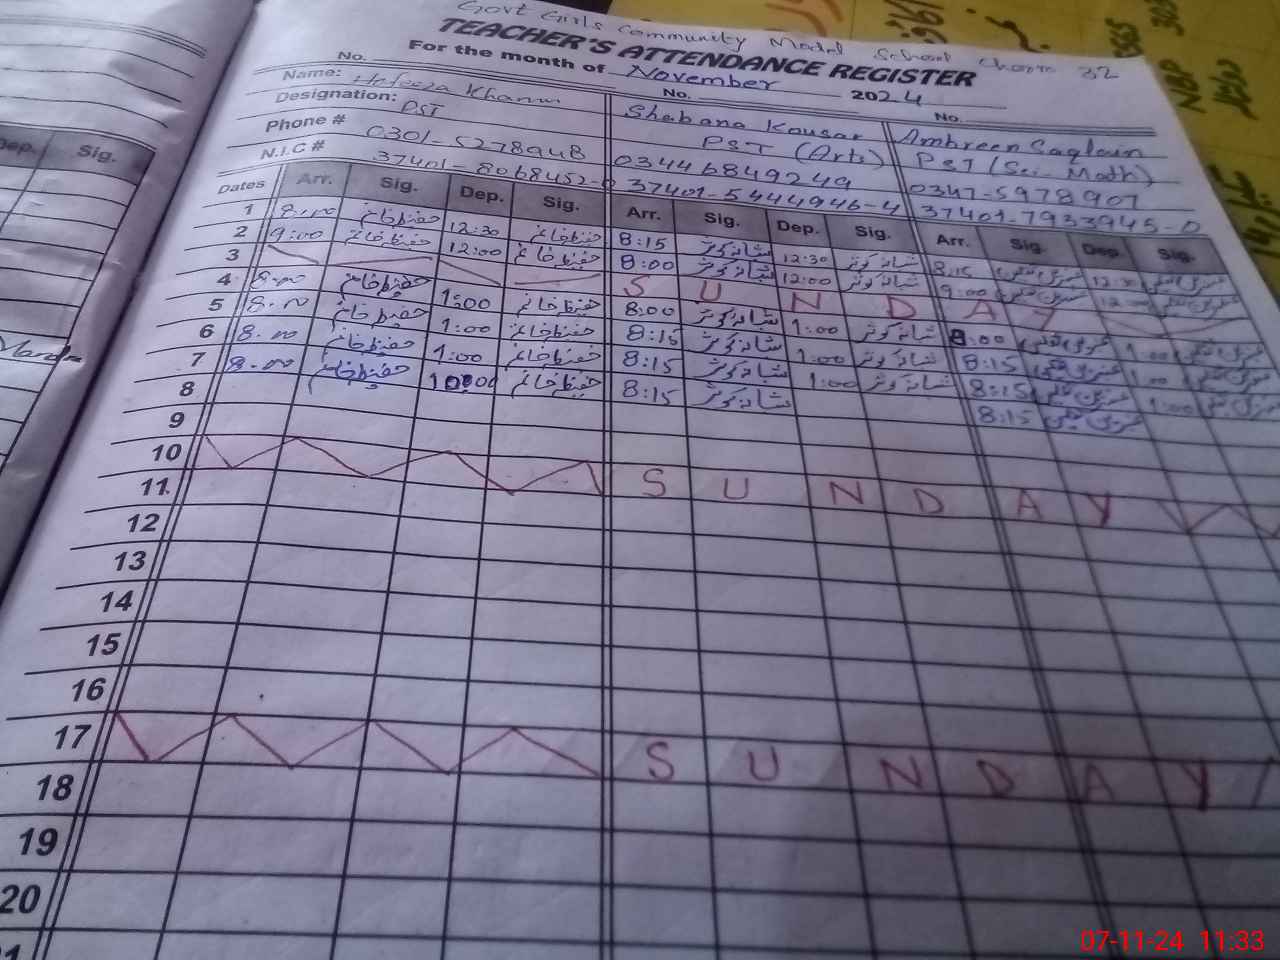 Govt Girls Community Model School Chhoi 32
TEACHER'S ATTENDANCE REGISTER
For the month of November 2024
No. No. No.
Name: Hafeeza Khanum Shabana Kousar Ambreen Saqlain
Designation: PST PST (Arts) PST (Sc. Math)
Phone # 0301-5278948 03446849249 0347-5978907
N.I.C # 37401-8068452-0 37401-5444946-4 37401-7933945-0
Dates Arr. Sig. Dep. Sig. Arr. Sig. Dep. Sig. Arr. Sig. Dep. Sig.
1 8:00 حفیظ خانم 12:30 حفیظ خانم 8:15 شبانہ کوثر 12:30 شبانہ کوثر 8:15 12:30
2 9:00 حفیظ خانم 12:00 حفیظ خانم 8:00 شبانہ کوثر 12:00 شبانہ کوثر 9:00 12:00
3 S U N D A Y
4 8:00 حفیظ خانم 1:00 حفیظ خانم 8:00 شبانہ کوثر 1:00 شبانہ کوثر 8:00 1:00
5 8:00 حفیظ خانم 1:00 حفیظ خانم 8:15 شبانہ کوثر 1:00 شبانہ کوثر 8:15 1:00
6 8:00 حفیظ خانم 1:00 حفیظ خانم 8:15 شبانہ کوثر 1:00 شبانہ کوثر 8:15 1:00
7 8:00 حفیظ خانم 1:00 حفیظ خانم 8:15 شبانہ کوثر 8:15
8
9
10 S U N D A Y
11
12
13
14
15
16
17 S U N D A Y
18
19
20
Dep. Sig.
07-11-24 11:33